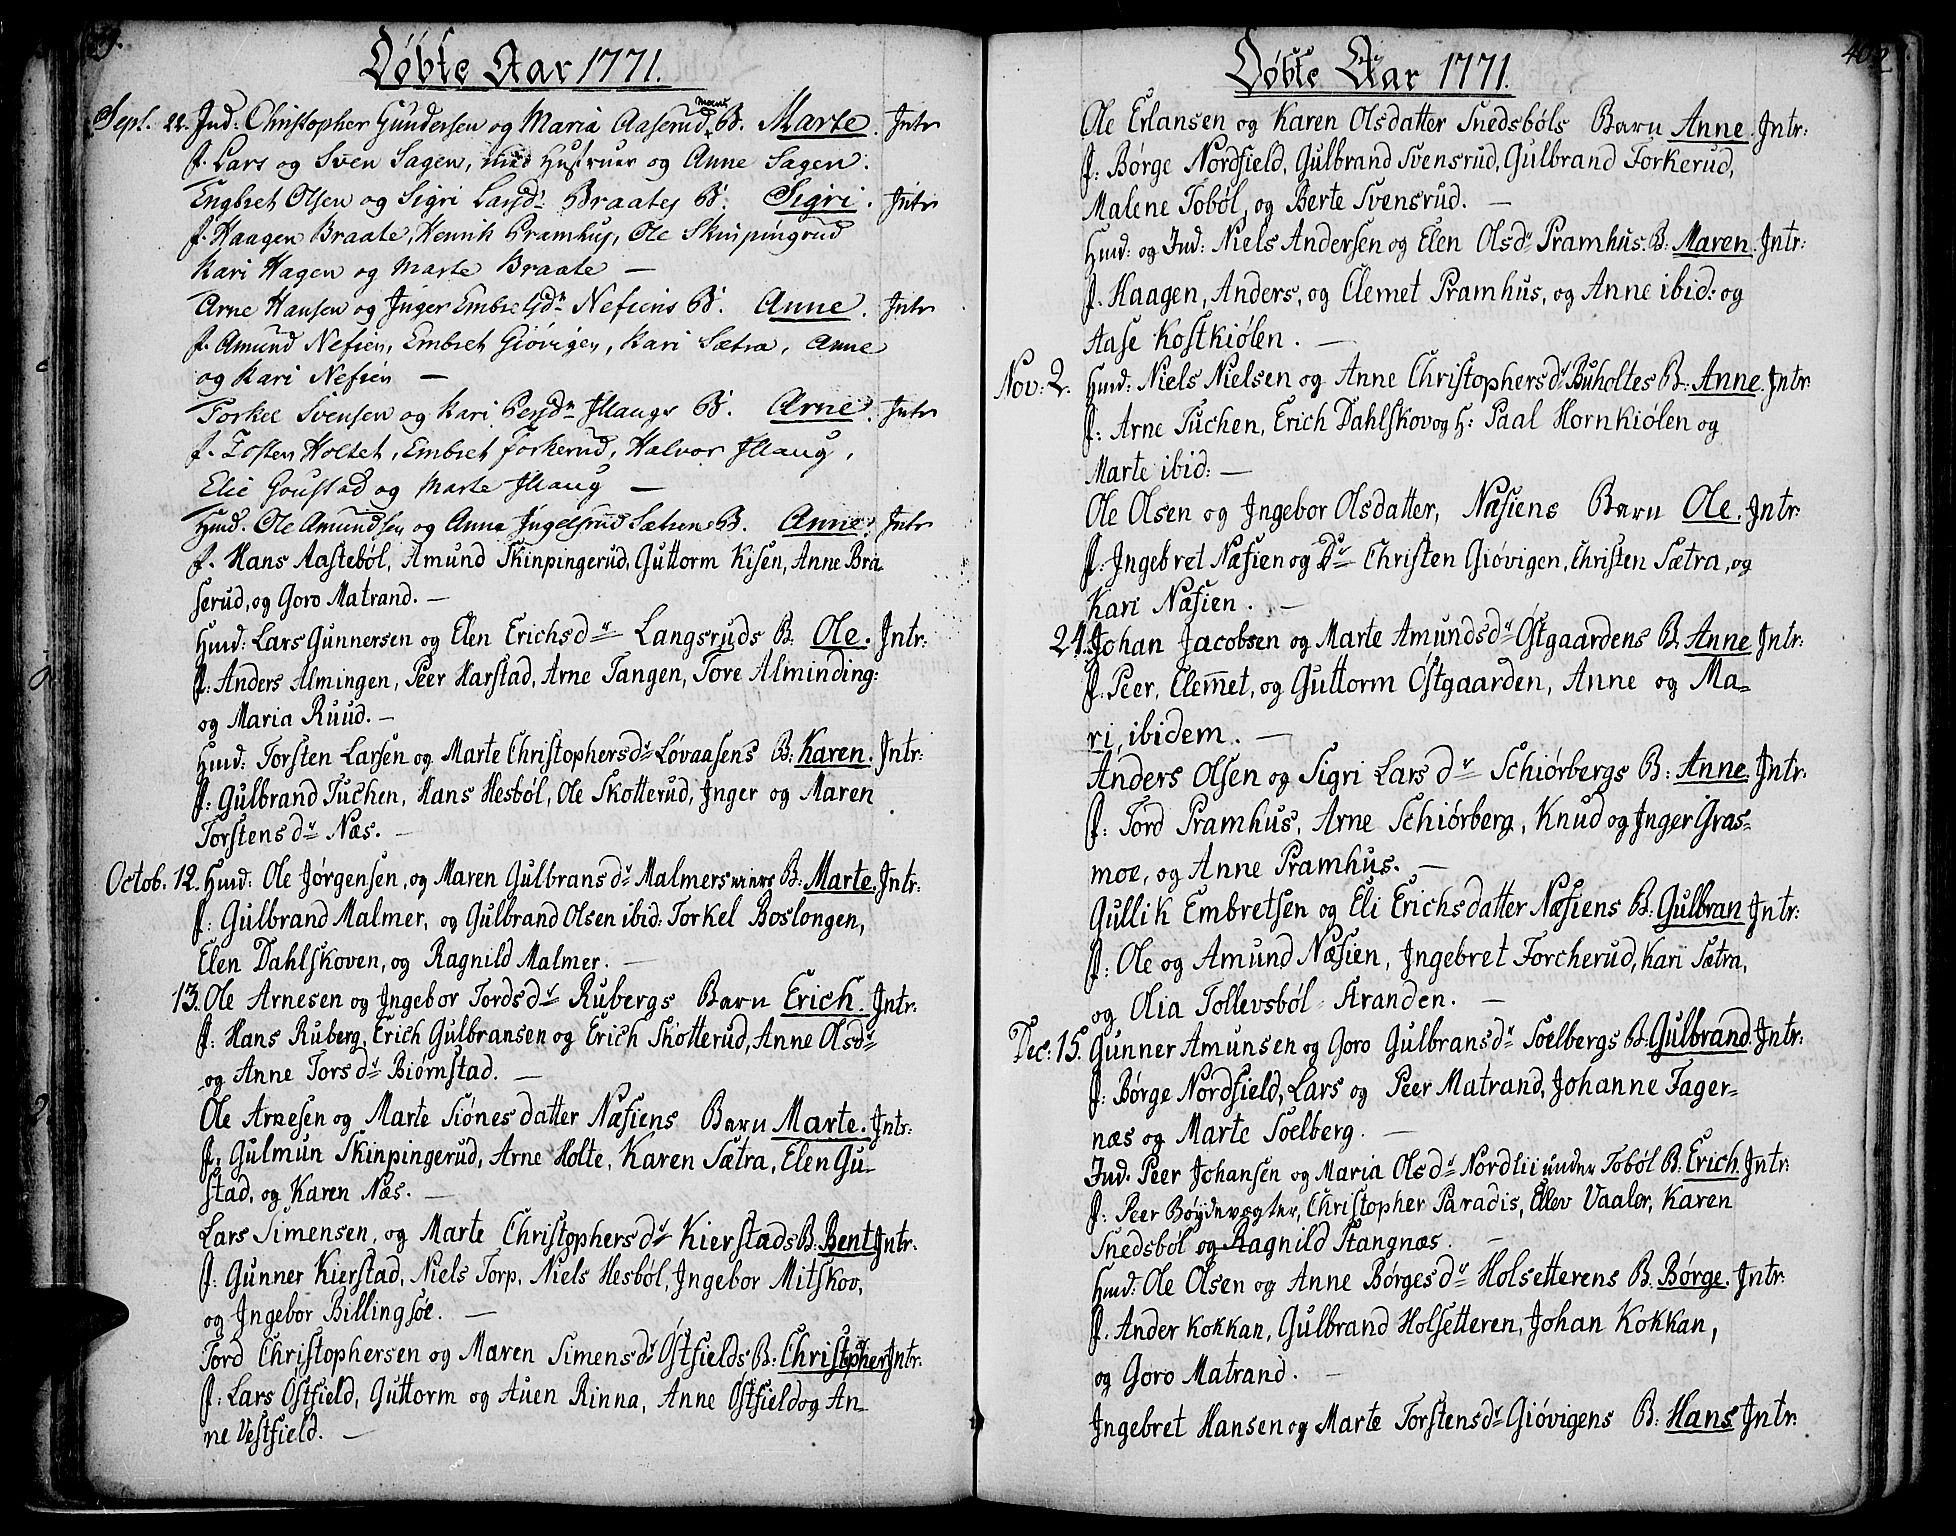 39.
Døbte Aar 1771.
Sept. 22. Ind. Christopher Gundersen og Maria Aaserudmoens B. Marte. Intr
f. Lars og Sven Sagen, med Hustruer og Anne Sagen.
Engbret Olsen og Sigri Larsdr Braates B. Sigri. Intr
f. Haagen Braate, Henrik Pramhus, Ole Skinpingrud
Kari Hagen og Marte Braate —
Arne Hansen og Inger Embretsdr Nefiens B. Anne. Intr
f. Amund Nefien, Embret Giøvigen, Kari Sætra, Anne
og Kari Nefien —
Torkel Svensen og Kari Persdr Illaugs B. Arne. Intr
f. Tosten Holtet, Embret Forkerud, Halvor Illaug,
Elie Goustad og Marte Illaug —
Hmd. Ole Amundsen og Anna Ingelsrud Sætrens B. Anne. Intr
f. Hans Aastebøl, Amund Skinpingerud, Guttorm Kisen, Anne Bra
serud, og Goro Matrand. —
Hmd: Lars Gunnersen og Elen Erichsdr Langsruds B. Ole. Intr:
f: Anders Almingen, Peer Harstad, Arne Tangen, Tore Alminding:
og Maria Ruud. —
Hmd: Torsten Larsen og Marte Christophersdr Løvaasens B: Karen. Intr:
f: Gulbrand Tuchen, Hans Hesbøl, Ole Skotterud, Inger og Maren
Torstensdr Næs. —
Octob. 12. Hmd: Ole Jørgensen, og Maren Gulbransdr Malmers B: Marte. Intr:
f: Gulbrand Malmer, og Gulbrand Olsen ibid: Torkel Boslongen,
Elen Dahlskoven, og Ragnild Malmer. —
13. Ole Arnesen og Ingebor Tordsdr Rubergs Barn Erich. Intr:
f: Hans Ruberg, Erich Gulbransen og Erich Skotterud, Anne Olsdr
og Anne Torsdr Biørnstad. —
Ole Arnesen og Marte Siónesdatter Næfiens Barn Marte. Intr:
f. Gulmun Skinpingerud, Arne Holte, Karen Sætra, Elen Gu-
stad, og Karen Næs. —
Lars Simensen, og Marte Christophersdr Kierstads B: Bent Intr.
f: Gunner Kierstad, Niels Torp, Niels Hesbøl, Ingebor Mitskov,
og Ingebor Billingsøe. —
Tord Christophersen og Maren Simensdr Østfields B: Christopher Intr:
f: Lars Østfield, Guttorm og Auen Rinna, Anne Østfield og An-
ne Vestfield. —
402
Døbte Aar 1771.
Ole Erlansen og Karen Olsdatter Snedsbøls Barn Anne. Intr:
f: Børge Nordfield, Gulbrand Svensrud, Gulbrand Forkerud,
Malene Tobøl, og Berte Svensrud. —
Hmd: og Ind: Niels Andersen og Elen Olsdr Pramhus. B: Maren. Intr:
f. Haagen, Anders, og Clemet Pramhus, og Anne ibid: og
Aase Kostkiølen. —
Nov: 2. Hmd: Niels Nielsen og Anne Christophersdr Buholtes B: Anne. Intr
f: Arne Tuchen, Erich Dahlskov og H: Paal Hornkiølen og
Marte ibid: —
Ole Olsen og Ingebor Olsdatter, Næfiens Barn Ole. Intr:
f: Ingebret Næfien og Dr Christen Giøvigen, Christen Sætra, og
Kari Næfien. —
24. Johan Jacobsen og Marte Amundsdr Østgaardens B. Anne Intr:
f. Peer, Clemet, og Guttorm Østgaarden, Anne og Ma-
ri, ibidem. —
Anders Olsen og Sigri Larsdr Schiørbergs B: Anne Intr.
f: Tord Pramhus, Arne Schiørberg, Knud og Inger Gras-
moe, og Anne Pramhus. —
Gullik Embretsen og Eli Erichsdatter Næfiens B: Gulbran Intr:
f: Ole og Amund Næfien, Ingebret Forcherud, Kari Sætra,
og Olia Tollevsbøl Stranden. —
Dec: 15. Gunner Amunsen og Goro Gulbransdr Soelbergs B: Gulbrand. Intr:
f: Børge Nordfield, Lars og Peer Matrand, Johanne Fager-
næs og Marte Soelberg. —
Ind. Peer Johansen og Maria Olsdr Nordlii under Tobøl B. Erich. Intr:
f: Peer Bøydevogter, Christopher Paradis, Ellev Vaaler, Karen
Snedsbøl og Ragnild Stangnæs. —
Hmd: Ole Olsen og Anne Børgesdr Holsetterens B. Børge. Intr:
f. Ander Kokkan, Gulbrand Holsetteren, Johan Kokkan,
og Goro Matrand. —
Ingebret Hansen og Marte Torstensdr Giøvigens B: Hans Intr: